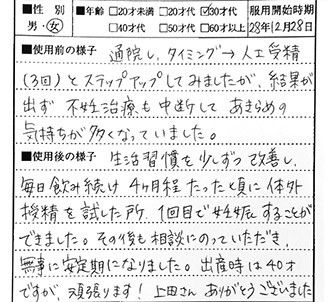 ■性 別 ■年齢 □20才未満 □20才代 ☑30才代 服用開始時期
男・女 □40才代 □50才代 □60才以上 28年12月28日
■使用前の様子 通院し、タイミング→人工受精
(3回)とステップアップしてみましたが、結果が
出ず 不妊治療も中断して あきらめの
気持ちが多くなっていました。
■使用後の様子 生活習慣を少しずつ改善し、
毎日飲み続け 4ヶ月経たった頃に体外
授精を試した所、1回目で妊娠することが
できました。その後も相談にのっていただき、
無事に安定期になりました。出産時は40才
ですが、頑張ります！上田さん ありがとうございました